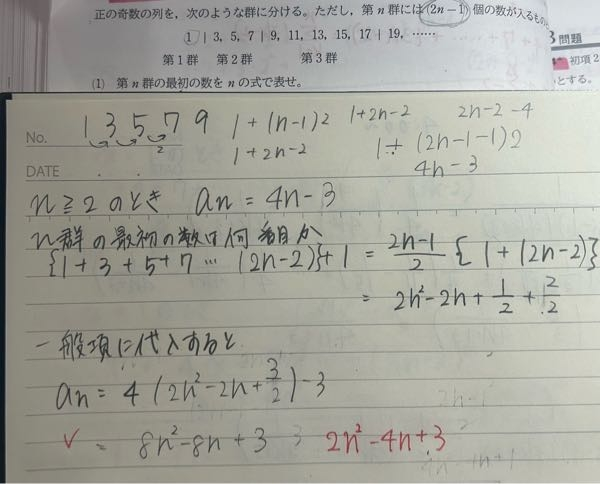 正の奇数の列を,次のような群に分ける。ただし,第n群には(2n−1)個の数が入るもの
1 | 3, 5, 7 | 9, 11, 13, 15, 17 | 19, ……
第1群 第2群 第3群
(1) 第n群の最初の数をnの式で表せ。
3 問題
初項2
とする。
No.
1 3 5 7 9
2
1+(n-1)2
1+2n-2
1+2n-2
2n-2-4
1+(2n-1-1)2
4n-3
DATE
n≧2のとき an = 4n-3
n群の最初の数は何番目か
{1+3+5+7 … (2n-2)}+1 = 2n-1/2 {1+(2n-2)}
= 2n²-2n+1/2+2/2
一般項に代入すると
an = 4(2n²-2n+3/2)-3
= 8n²-8n+3
2n²-4n+3